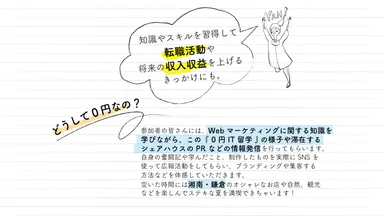 知識やスキルを習得して
転職活動や
将来の収入収益を上げる
きっかけにも。
どうして０円なの？
参加者の皆さんには、Webマーケティングに関する知識を
学びながら、この『０円IT留学』の様子や滞在する
シェアハウスのPRなどの情報発信を行ってもらいます。
自身の奮闘記や学んだこと、制作したものを実際にSNSを
使って広報活動をしてもらい、ブランディングや集客する
方法などを体感していただきます。
空いた時間には湘南・鎌倉のオシャレなお店や自然、観光
などを楽しんでステキな夏を満喫できちゃいます！